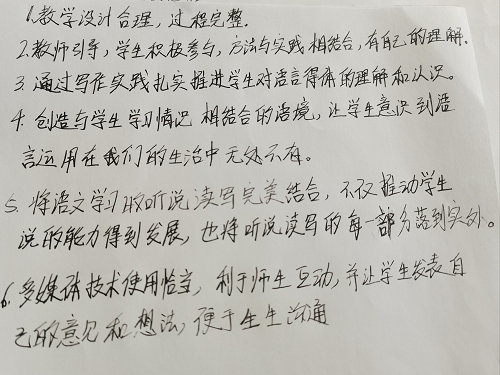 1.教学设计合理，过程完整.
2.教师引导，学生积极参与，方法与实践相结合，有自己的理解.
3.通过写作实践扎实推进学生对语言得体的理解和认识。
4.创造与学生学习情况相结合的语境，让学生意识到语
言运用在我们的生活中无处不有。
5.将语文学习的听说读写完美结合，不仅推动学生
说的能力得到发展，也将听说读写的每一部分落到实处。
6.多媒体技术使用恰当，利于师生互动，并让学生发表自
己的意见和想法，便于生生沟通